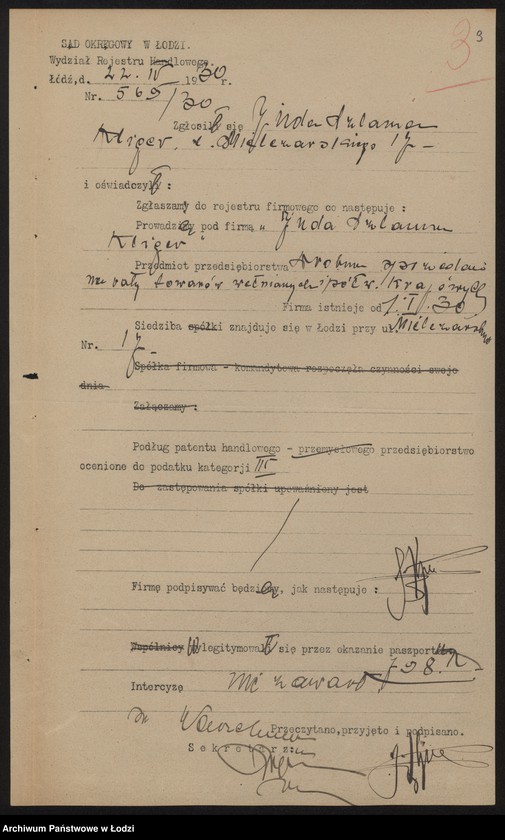 3 3
SĄD OKRĘGOWY W ŁODZI.
Wydział Rejestru Handlowego.
Łódź,d. 22. IV 1930 r.
Nr. 569/30
Zgłosił się Jnda Szlama
Kliger, z. Mielczarskiego 17 -
i oświadczył :
Zgłaszam do rejestru firmowego co następuje :
Prowadzę pod firmą „ Jnda Szlama
Kliger "
Przedmiot przedsiębiorstwa drobna sprzedaż
na raty towarów wełnianych i półw. krajowych
Firma istnieje od 1. I. 30
Siedziba spółki znajduje się w Łodzi przy ul. Mielczarskiego
Nr. 17 -
Spółka firmowa - komandytowa rozpoczęła czynności swoje
dnia
Załączamy :
Podług patentu handlowego - przemysłowego przedsiębiorstwo
ocenione do podatku kategorji III
Do zastępowania spółki upoważniony jest
Firmę podpisywać będzie, jak następuje :
Wspólnicy wylegitymował się przez okazanie paszportu
Intercyzę nie zawarł
Przeczytano,przyjęto i podpisano.
Sekretarz:
Archiwum Państwowe w Łodzi